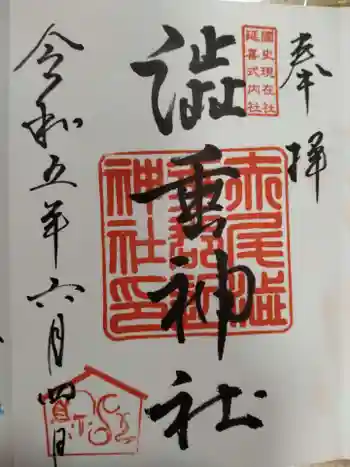 奉拝
國史現在社
延喜式内社
澁垂神社
赤尾澁
垂郡辺
神社印
令和五年六月四日